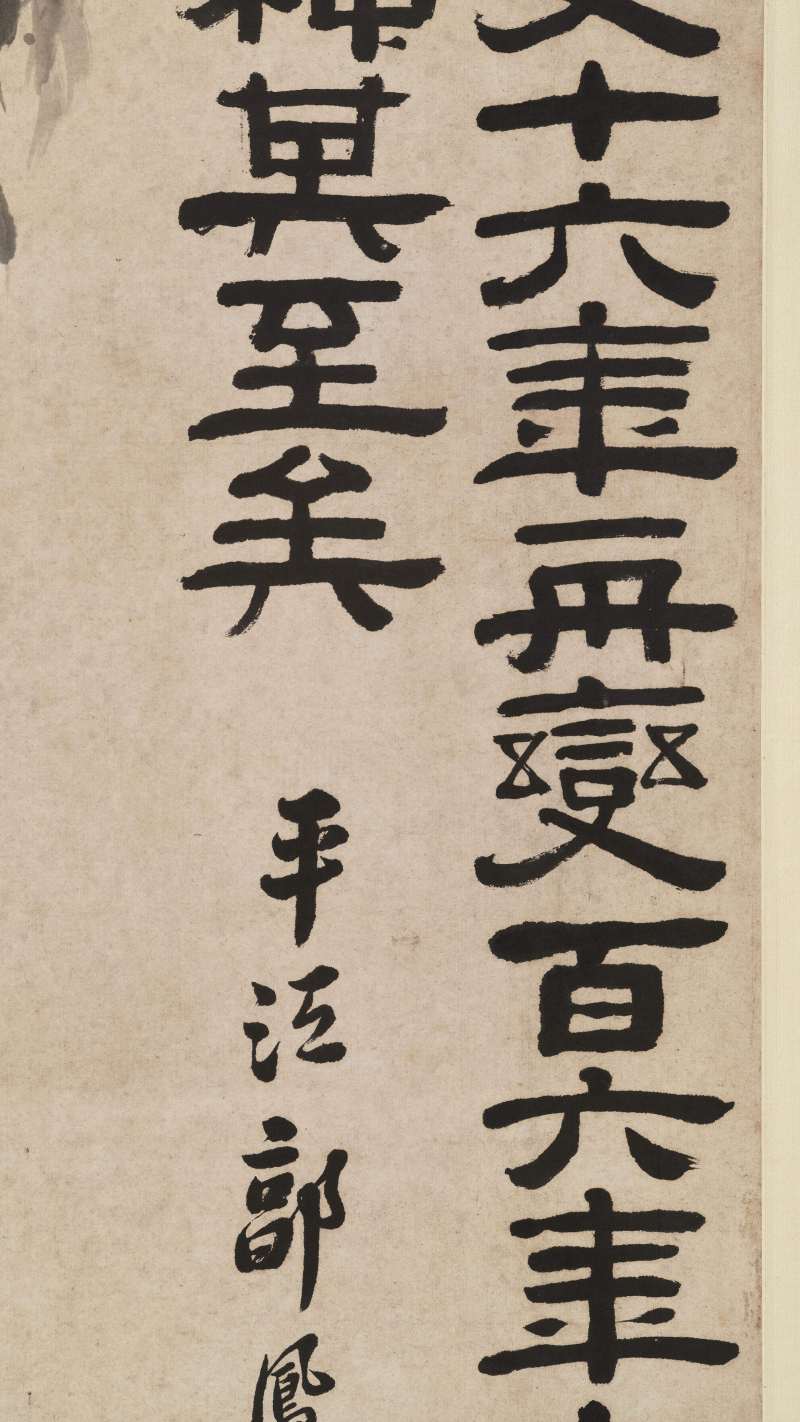 十六年再變百六年
其至矣
平江郭鳳